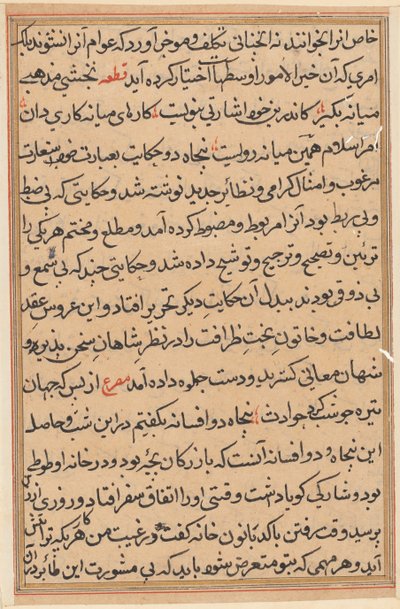 خاص انرا نخوانند نه انچنانی تکلف و موجز آورد که عوام آنرا نشنوند بلکه
امری که آن خیر الامور اوسطها اختیار کرده آید قطعه نخشبی مذهب
میانه بگیر کاندرین خود اشارتی نبویست کارهای میانه کاری دان
اسلام همین میانه رویست پنجاه دو حکایت بعبارت استعارت
مرغوب و امثال گرامی و نظائر جدید نوشته شد و حکایتی که بی ضبط
و بی ربط بود آنرا مربوط و مضبوط کرده آمد و مطلع و مختم هر یکی را
تزئین و ترجیح و توشیح داده شد و حکایتی چند که بی سمع و
بی ذوق بودند ببدل آن حکایت دیگر تحریر افتاد و این عروس عقد
لطافت و خاتون تخت ظرافت را در نظر شاهان سخن پذیر و
معانی گستر بدو دست جلوه داده آمد مصرع از بس که جهان
تیره حوادث پنجاه دو افسانه بگفتیم در این شب و حاصل
این پنجاه و دو افسانه آنست که بازرگان بچه بود و در خانه او طوطی
بود و شارکی گویا داشت وقتی او را اتفاق سفر افتاد و روزی
برسید وقت رفتن با کدبانون خانه گفت در غیبت من هر یکه ترا پیش
آید و هر مهمی که بتو متعرض شود باید که بی مشورت این طائر